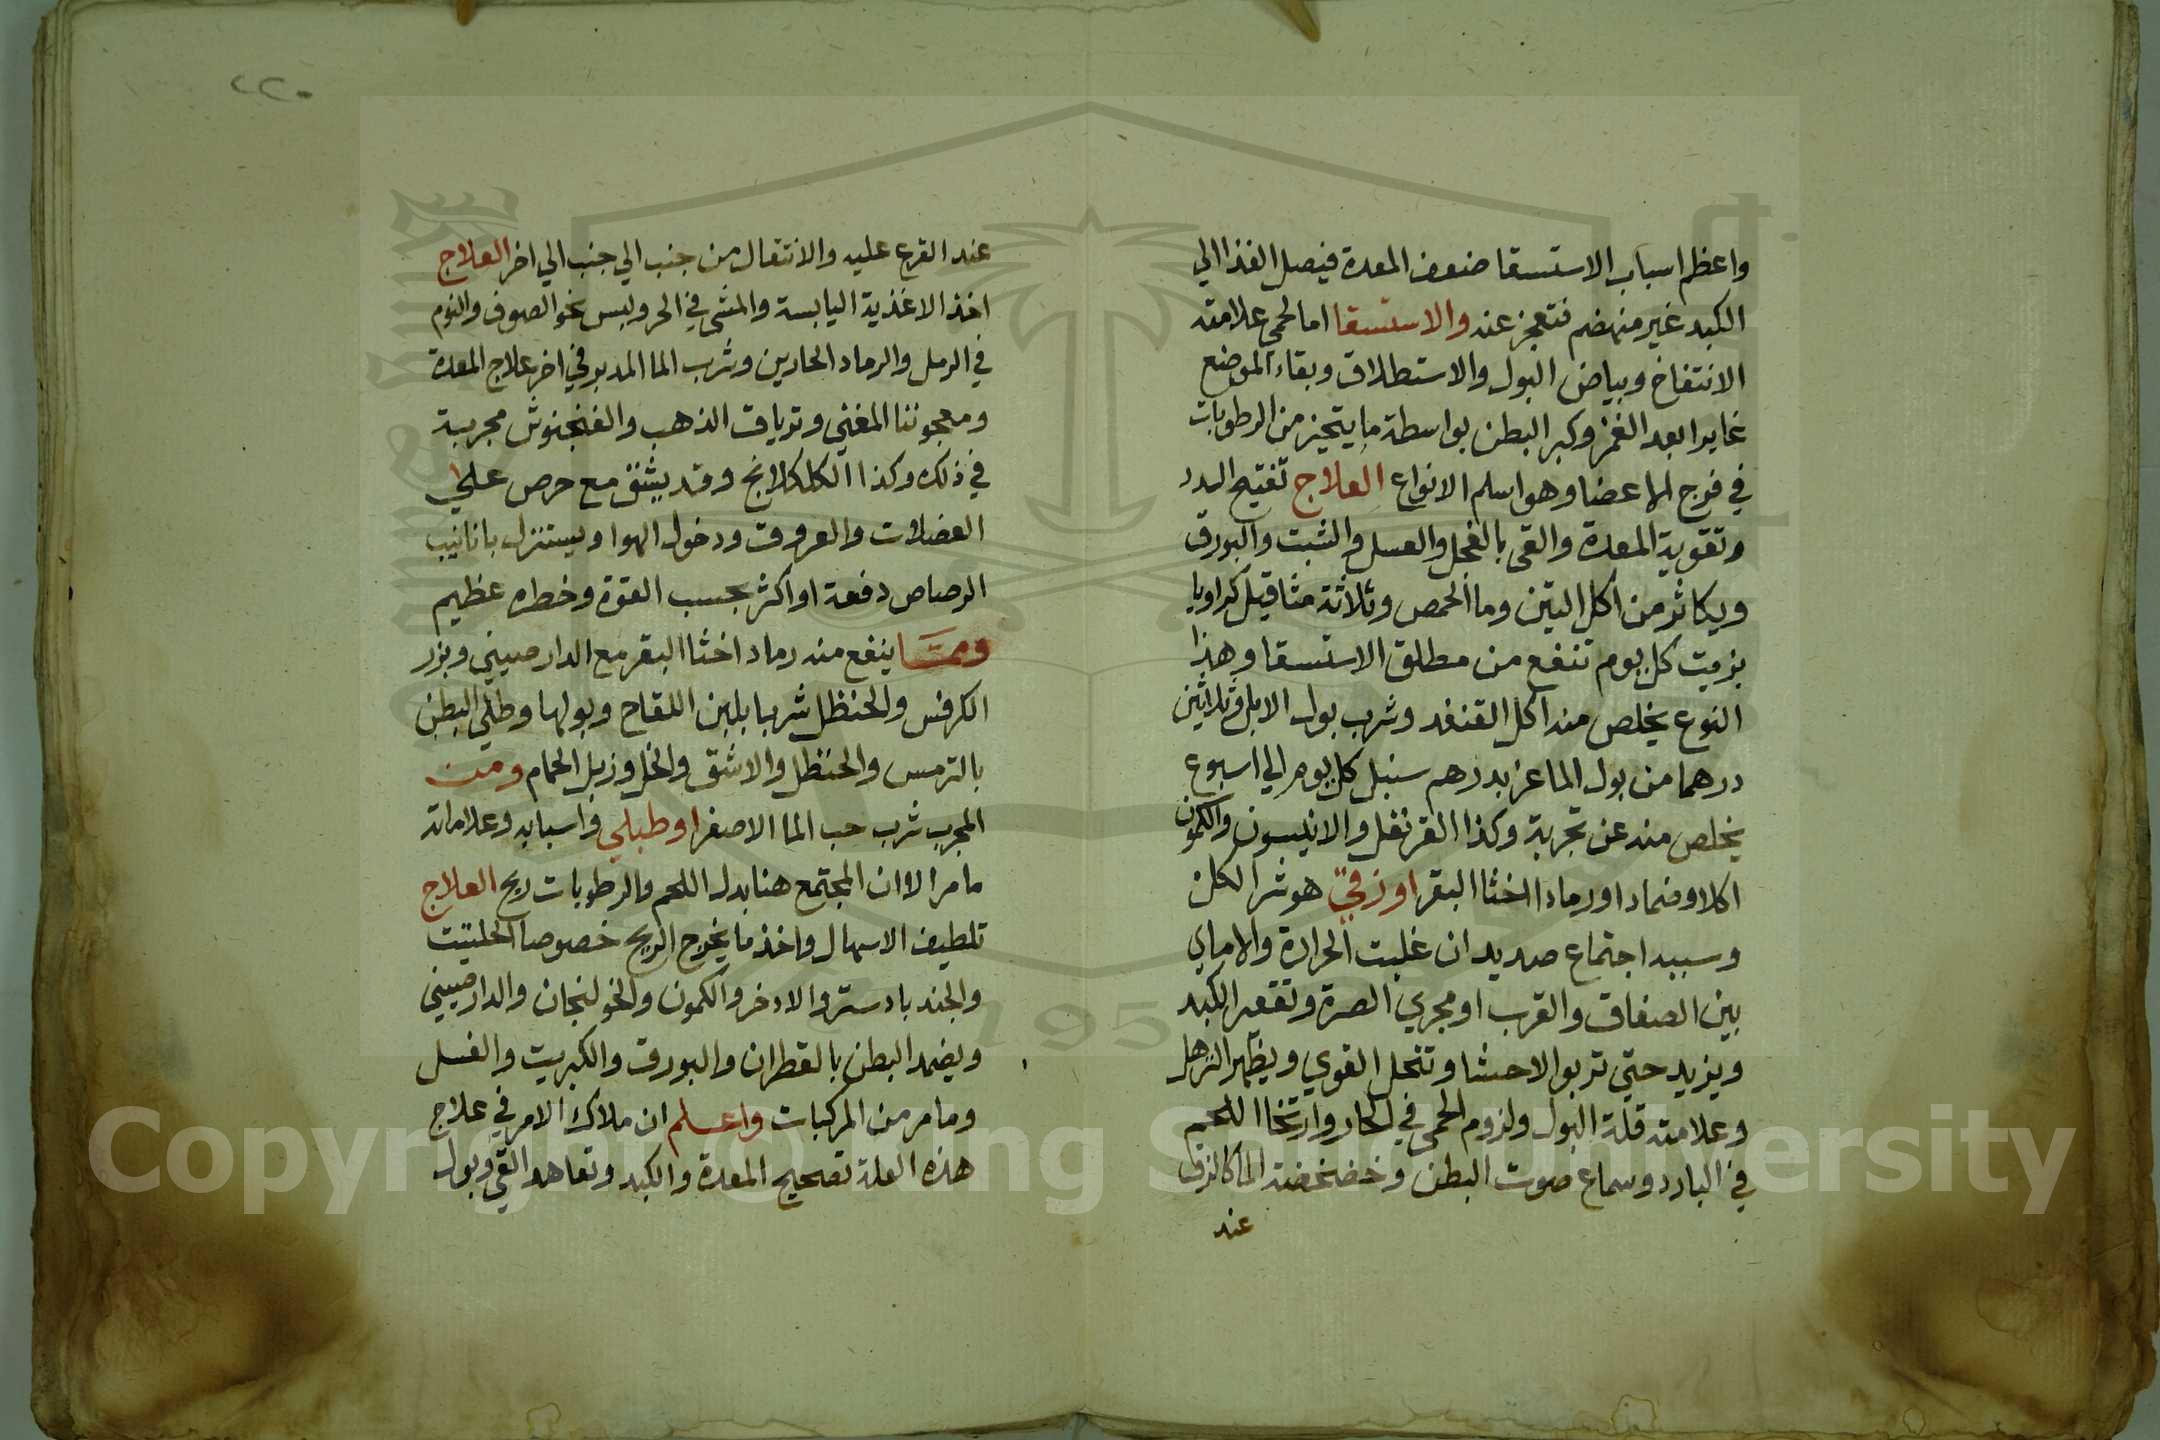 واعظم اسباب الاستسقا ضعف المعدة فيصل الغذا الي
الكبد غير منهضم فتعجز عنه والاستسقا اما لحمي علامته
الانتفاخ وبياض البول والاستطلاق وبقاء الموضع
غايرا بعد الغمز وكبر البطن بواسطة ما يتحيز من الرطوبات
في فرج الاعضا وهو اسلم الانواع العلاج تفتيح السدد
وتقوية المعدة والقي بالفجل والعسل والشبت والبورق
ويكاثر من اكل التين وما الحمص وثلاثة مثاقيل كراويا
بزيت كل يوم تنفع من مطلق الاستسقا وهذا
النوع يخلص منه اكل القنفد وشرب بول الابل وثلاثين
درهما من بول الماعز بدرهم سنبل كل يوم الي اسبوع
يخلص منه عن تجربة وكذا القرنفل والانيسون والكمون
اكلا وضمادا ورماد اخثا البقر او زقي هو شر الكل
وسببه اجتماع صديد ان غلبت الحرارة والا ماي
بين الصفاق والثرب او مجري الصرة وتقعر الكبد
ويزيد حتي تربوا الاحشا وتنحل القوي ويظهر الترهل
وعلامته قلة البول ولزوم الحمي في الحار وارتخا اللحم
في البارد وسماع صوت البطن وخضخضة الما كالزق
عند
٢٢٠
عند القرع عليه والانتقال من جنب الي جنب الي اخر العلاج
اخذ الاغذية اليابسة والمشي في الحر ولبس نحو الصوف والنوم
في الرمل والرماد الحارين وشرب الما المدبر في اخر علاج المعدة
ومعجوننا المغني وترياق الذهب والفنجنوش مجربة
في ذلك وكذا الكلكلانج وقد يثقف مع حرص علي
العضلات والعروق ودخول الهوا ويستنزل بانانيب
الرصاص دفعة او اكثر بحسب القوة وخطره عظيم
ومما ينفع منه رماد اخثا البقر مع الدارصيني وبزر
الكرفس والحنظل شربا بلبن اللقاح وبولها وطلي البطن
بالترمس والحنظل والاشق والخل وزبل الحمام ومن
المجرب شرب حب الما الاصفر او طبلي واسبابه وعلاماته
ما مر الا ان المجتمع هنا بدل اللحم والرطوبات ريح العلاج
تلطيف الاسهال واخذ ما يخرج الريح خصوصا الحلتيت
والجندبادستر والادخر والكمون والخولنجان والدارصيني
ويضمد البطن بالقطران والبورق والكبريت والعسل
وما مر من المركبات واعلم ان ملاك الامر في علاج
هذه العلة تصحيح المعدة والكبد وتعاهد القي وبول
Copyright © King Saud University
195